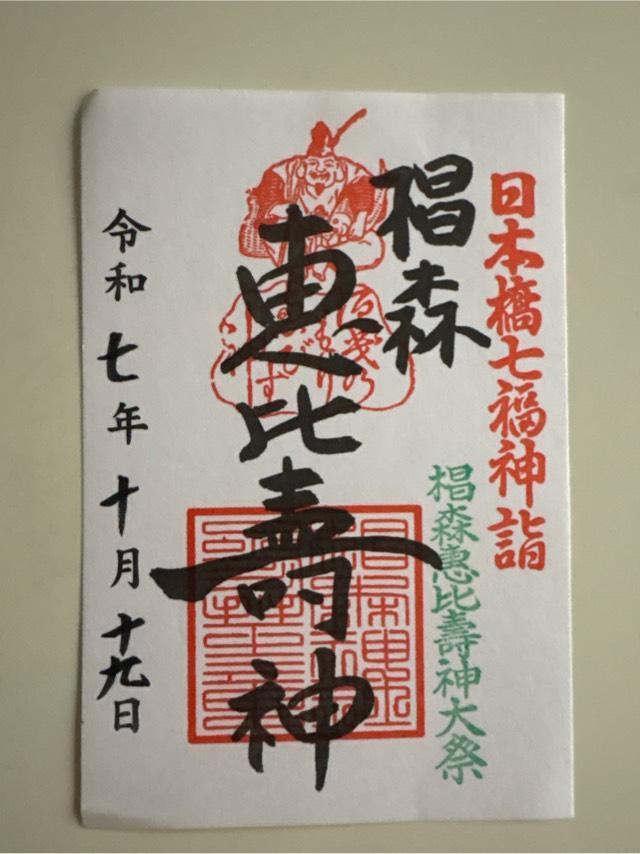 日本橋七福神詣
椙森恵比壽神大祭
椙森
恵比壽神
令和七年十月十九日